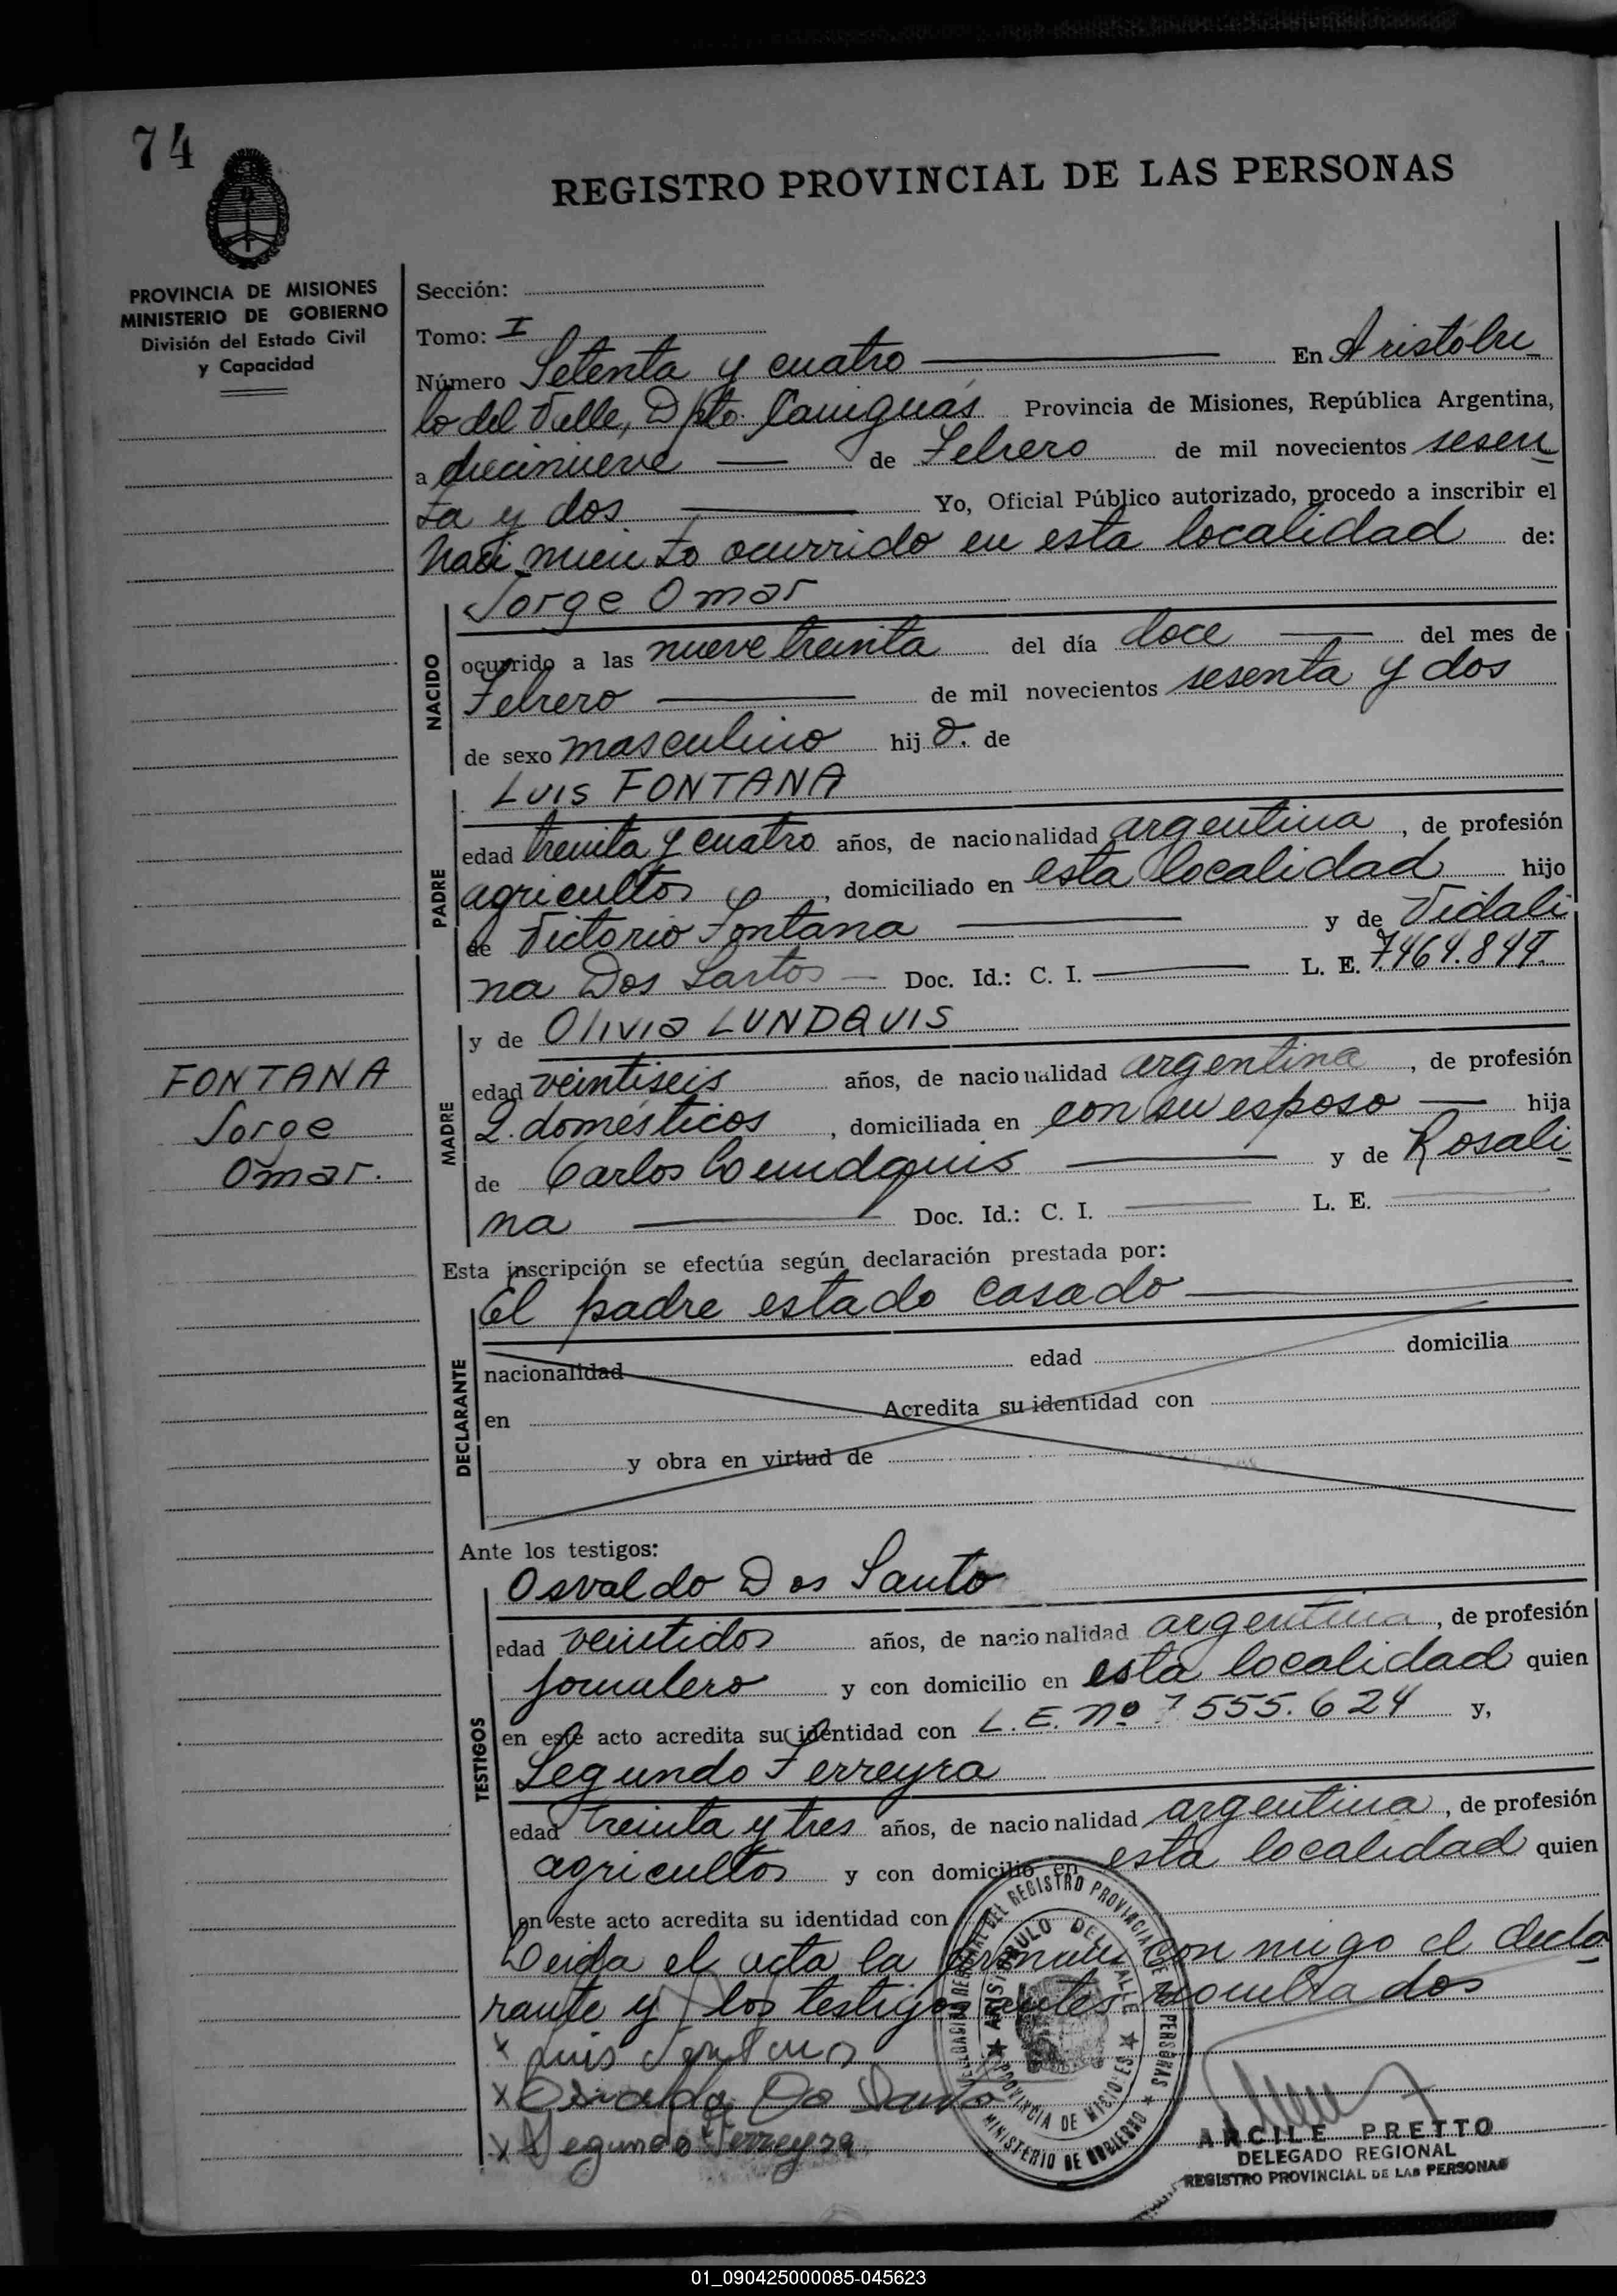 74
REGISTRO PROVINCIAL DE LAS PERSONAS
PROVINCIA DE MISIONES
MINISTERIO DE GOBIERNO
División del Estado Civil
y Capacidad
Sección:
Tomo: I
Número Setenta y cuatro En Aristóbu
lo del Valle, Dpto. Cainguás Provincia de Misiones, República Argentina,
a diecinueve de Febrero de mil novecientos sesen
ta y dos Yo, Oficial Público autorizado, procedo a inscribir el
Nacimiento ocurrido en esta localidad de:
Jorge Omar
NACIDO
ocurrido a las nueve treinta del día doce del mes de
Febrero de mil novecientos sesenta y dos
de sexo masculino hijo. de
LUIS FONTANA
PADRE
edad treinta y cuatro años, de nacionalidad argentina, de profesión
agricultor, domiciliado en esta localidad hijo
de Victorio Fontana y de Vidali
na Dos Santos Doc. Id.: C. I. L. E.
y de Olivia LUNDQUIS
MADRE
edad veintiseis años, de nacionalidad argentina, de profesión
Q. domésticos, domiciliada en con su esposo hija
de Carlos y de Rosali
na Doc. Id.: C. I. L. E.
FONTANA
Jorge
Omar.
Esta inscripción se efectúa según declaración prestada por:
El padre estado casado
DECLARANTE
nacionalidad edad domicilia
en Acredita su identidad con
y obra en virtud de
Ante los testigos:
Osvaldo Dos Santo
TESTIGOS
edad veintidos años, de nacionalidad argentina, de profesión
jornalero y con domicilio en esta localidad quien
en este acto acredita su identidad con L. E. nº 7555.624 y,
Segundo Ferreyra
edad treinta y tres años, de nacionalidad argentina, de profesión
agricultor y con domicilio en esta localidad quien
en este acto acredita su identidad con
Leida el acta la firman con migo el decla
rante y los testigos antes nombrados
x Luis Fontana
x Osvaldo Do Santo
x Segundo Ferreyra
DEL REGISTRO PROVINCIAL DE LAS PERSONAS
MINISTERIO DE GOBIERNO
ARISTOBULO DEL VALLE
PROVINCIA DE MISIONES
ARCILE PRETTO
DELEGADO REGIONAL
REGISTRO PROVINCIAL DE LAS PERSONAS
01_090425000085-045623